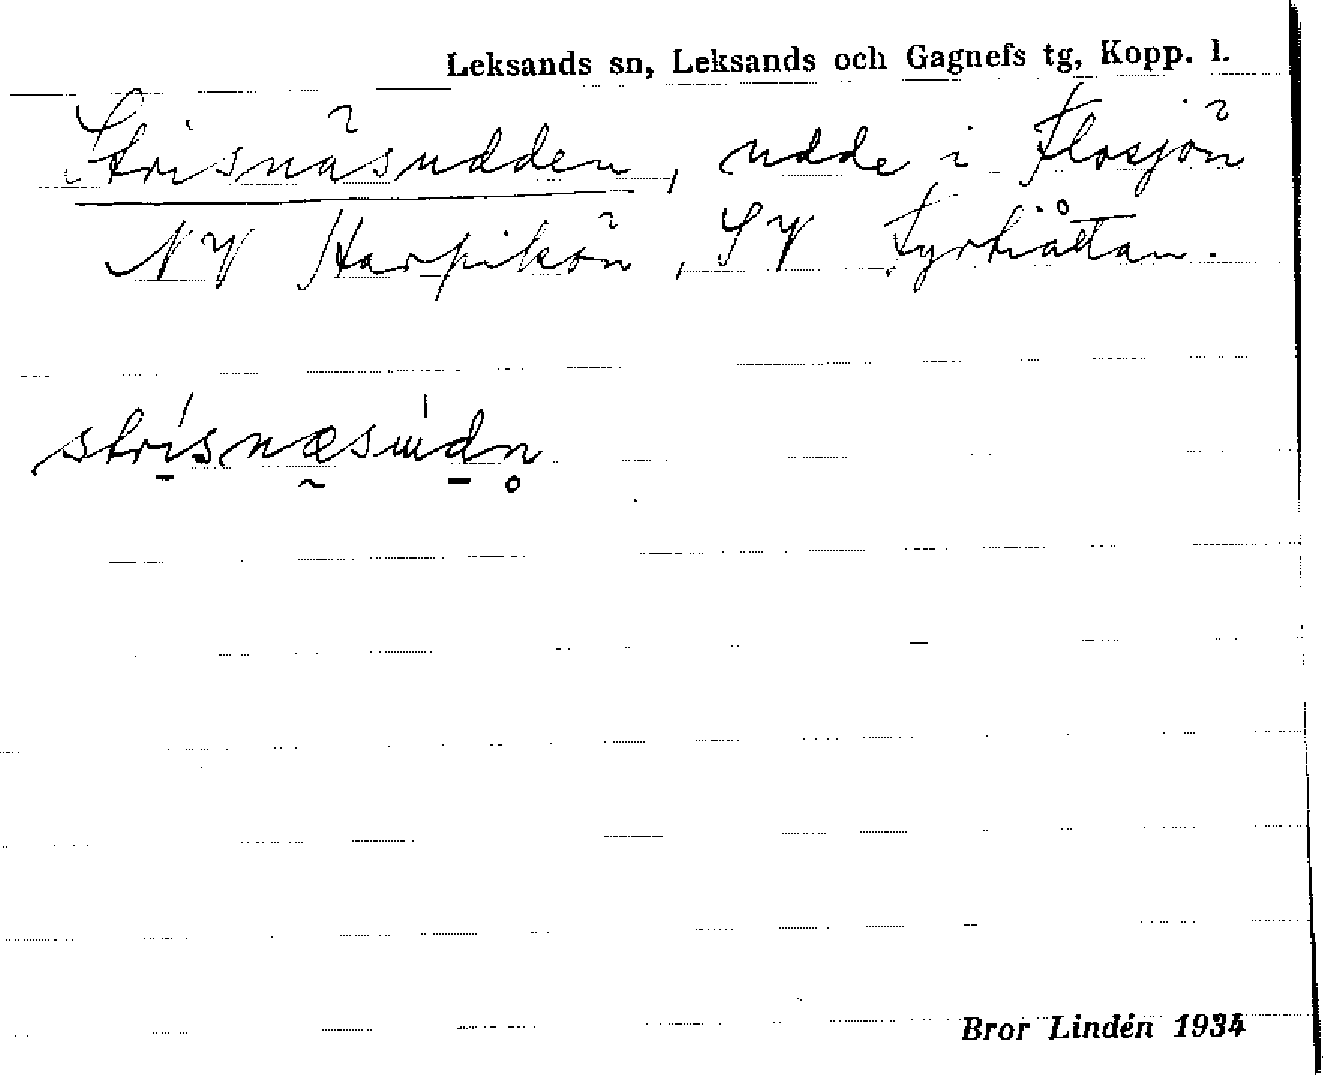 Leksands sn, Leksands och Gagnefs tg, Kopp. l.
Strisnäsudden, udde i Flosjön
NV Harpikön, SV Fyrhåttan.
strisnæsudn
Bror Lindén 1934